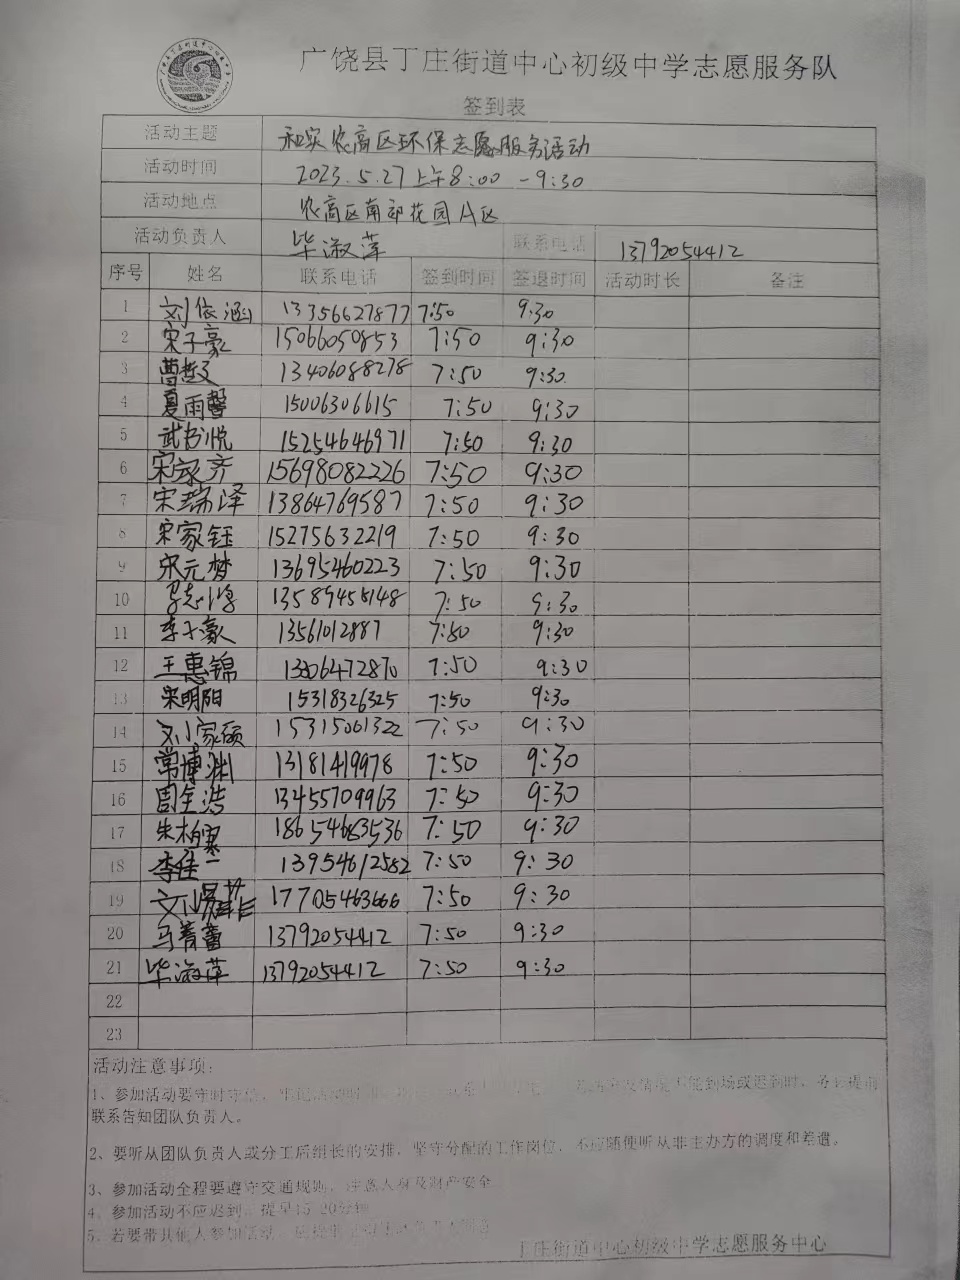 广饶县丁庄街道中心初级中学志愿服务队
签到表
活动主题 和实农高区环保志愿服务活动
活动时间 2023.5.27上午8:00-9:30
活动地点 农高区南部花园A区
活动负责人 毕淑萍 联系电话 13792054412
序号 姓名 联系电话 签到时间 签退时间 活动时长 备注
1 刘依涵 13356627877 7:50 9:30
2 宋子豪 15066050853 7:50 9:30
3 13406088278 7:50 9:30
4 夏雨馨 15006306615 7:50 9:30
5 武书悦 15254646971 7:50 9:30
6 15698082226 7:50 9:30
7 宋瑞泽 13864769587 7:50 9:30
8 宋家钰 15275632219 7:50 9:30
9 宋元梦 13695460223 7:50 9:30
10 7:50 9:30
11 李子豪 13561012887 7:50 9:30
12 王惠锦 13306472870 7:50 9:30
13 宋明阳 15318326325 7:50 9:30
14 刘家硕 15315061322 7:50 9:30
15 常博渊 13181419978 7:50 9:30
16 13455709963 7:50 9:30
17 18654683536 7:50 9:30
18 李佳一 13954612582 7:50 9:30
19 17705463666 7:50 9:30
20 马菁蕾 13792054412 7:50 9:30
21 毕淑萍 13792054412 7:50 9:30
22
23
活动注意事项:
1、参加活动要守时守信, 能到场或迟到时,务必提前
联系告知团队负责人。
2、要听从团队负责人或分工后组长的安排,坚守分配的工作岗位,不应随便听从非主办方的调度和差遣。
3、参加活动全程要遵守交通规则,注意人身及财产安全
4、参加活动不应迟到,提早15-20分钟
5、若要带其他人参加活动,
丁庄街道中心初级中学志愿服务中心